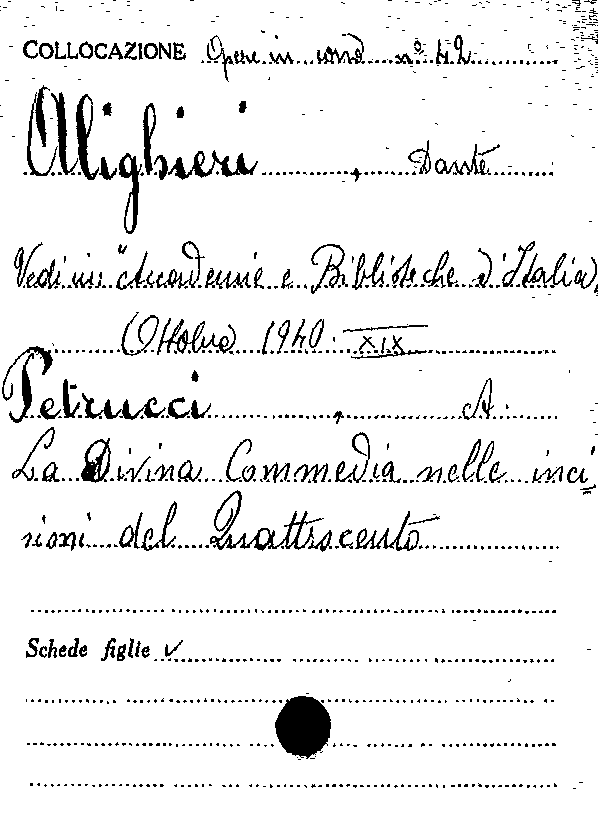 COLLOCAZIONE Opere in cond nº 42
Alighieri , Dante
Vedi in "Accademie e Biblioteche d'Italia,
Ottobre 1940. XIX
Petrucci , A.
La Divina Commedia nelle inci
sioni del Quattrocento
Schede figlie ✓